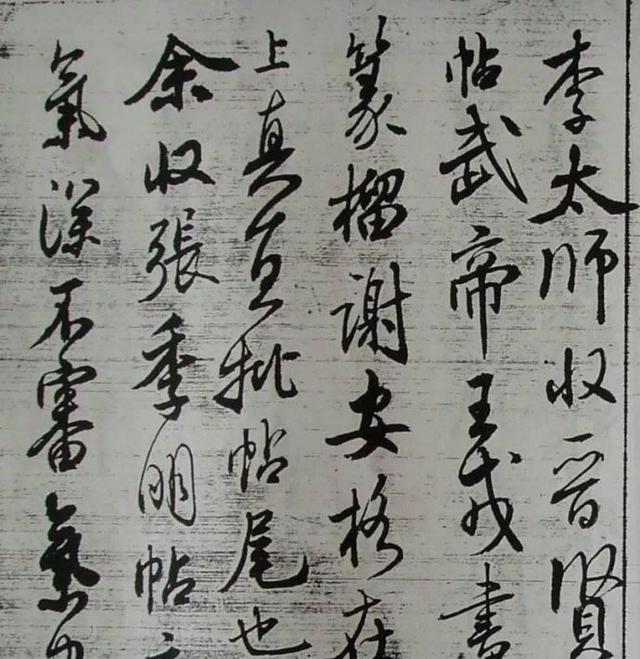 李太師収晉賢
帖武帝王戎書
篆榴謝安格在
上真宜批帖尾也
余収張季明帖
氣深不審氣力